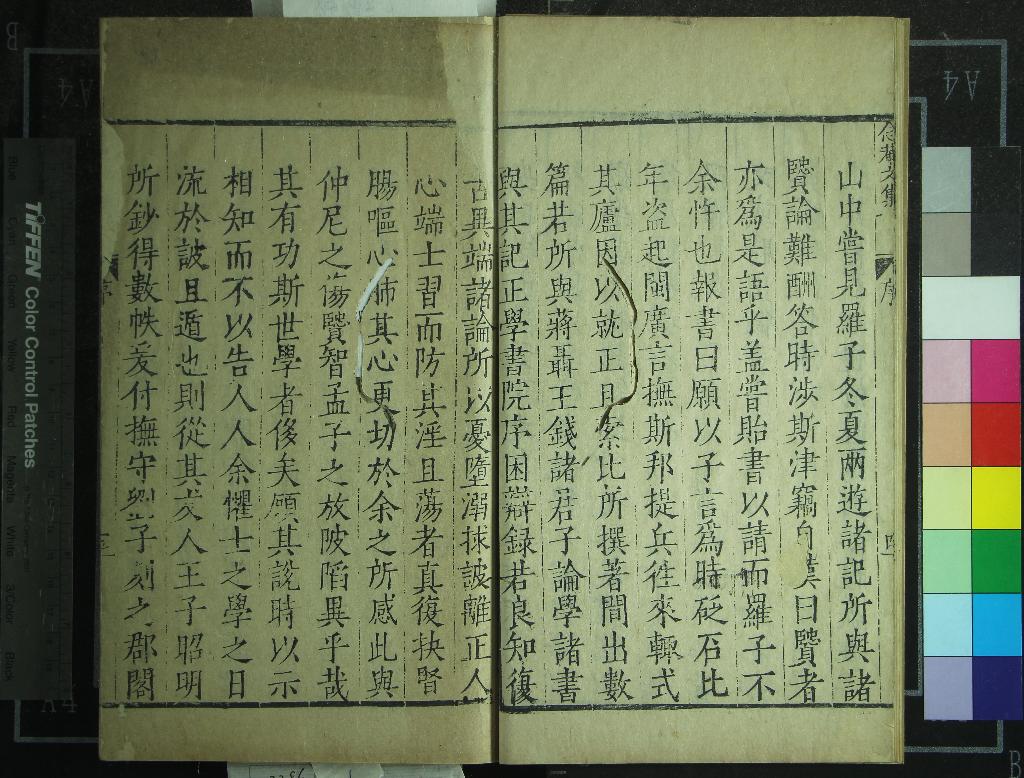 念菴文集
序
山中嘗見羅子冬夏兩遊諸記所與諸
贒論難酬答時涉斯津竊自嘆曰贒者
亦爲是語乎盖嘗貽書以請而羅子不
余忤也報書曰願以子言爲時砭石比
年盗起閩廣言撫斯邦提兵徃來輙式
其廬因以就正且索比所撰著間出數
篇若所與蔣聶王錢諸君子論學諸書
與其記正學書院序困辯録若良知復
古異端諸論所以憂墮溺捄詖離正人
心端士習而防其淫且蕩者真復抉腎
腸嘔心肺其心更切於余之所感此與
仲尼之傷贒智孟子之放陂䧟異乎哉
其有功斯世學者俟矣顧其說時以示
相知而不以告人人余懼士之學之日
流於詖且遁也則從其友人王子昭明
所鈔得數帙爰付撫守劉子刻之郡閣
序
TIFFEN Color Control Patches
Blue
Cyan
Green
Yellow
Red
Magenta
White
3/Color
Black
A4
A4
A4
B
B